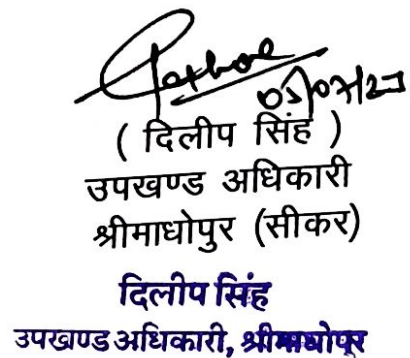 05/07/23
( दिलीप सिंह )
उपखण्ड अधिकारी
श्रीमाधोपुर (सीकर)
दिलीप सिंह
उपखण्ड अधिकारी, श्रीमाधोपुर